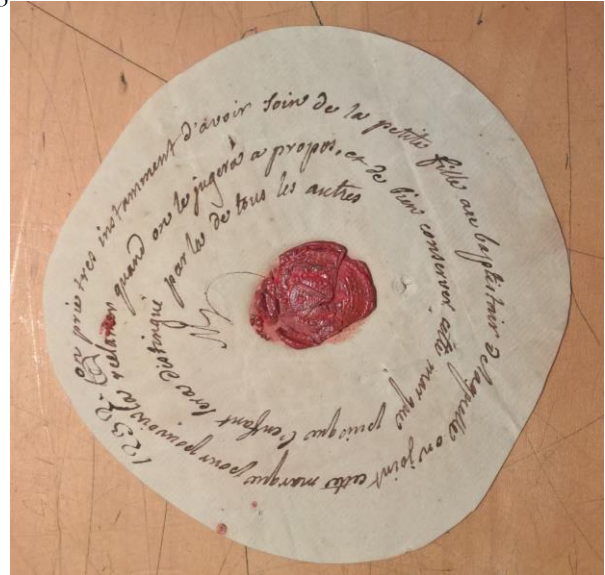 1232 On prie tres instamment d'avoir soin de la petite fille au baptistair de laquelle on joint cette marque pour pouvoir la reclamer
quand on le jugera a propos, et de bien conserver cette marque puisque l'enfant sera distingué
par la de tous les autres